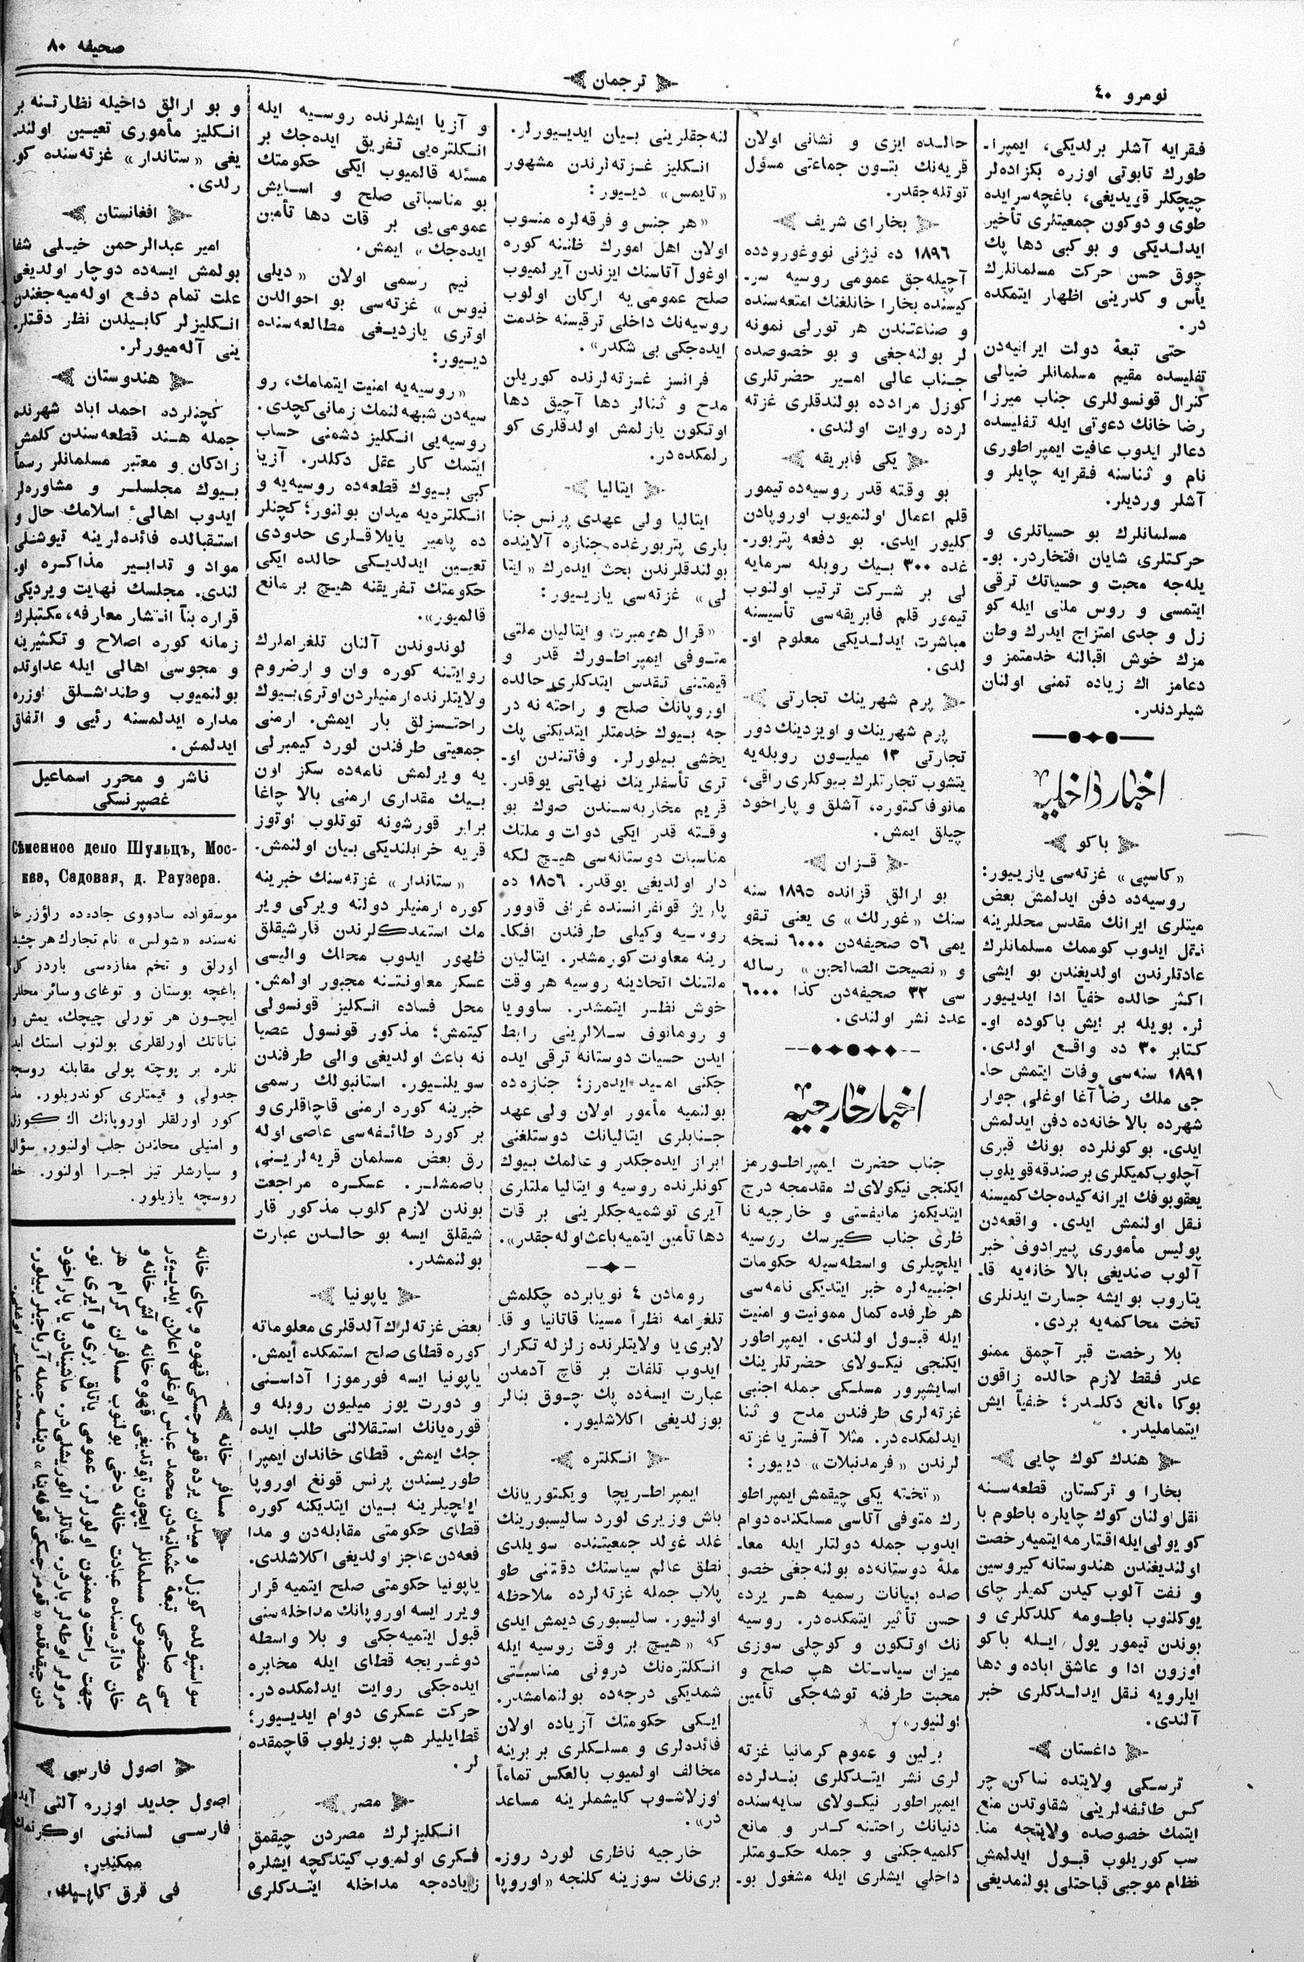 نومرو ٤٠
ترجمان
صحیفه ٨٠
فقرایه آشلر برلدیکی، ایمپرا-
طورك تابوتی اوزره بکزاده‌لر
چیچکلر قویدیغی، باغچه‌سرایده
طوی و دوکون جمعیتلری تأخیر
ایدلدیکی و بو کبی دها پك
چوق حسن حرکت مسلمانلرك
یأس و کدرینی اظهار ایتمکده
در.
حتی تبعهٔ دولت ایرانیه‌دن
تفلیسده مقیم مسلمانلر ضیالی
کنرال قونسوللری جناب میرزا
رضا خانك دعوتی ایله تفلیسده
دعالر ایدوب عاقبت ایمپراطوری
نام و ثناسنه فقرایه چایلر و
آشلر وردیلر.
مسلمانلرك بو حسیاتلری و
حرکتلری شایان افتخاردر. بو-
یله‌جه محبت و حسیاتك ترقی
ایتمسی و روس ملتی ایله کو
زل و جدی امتزاج ایدرك وطن
مزك خوش اقبالنه خدمتمز و
دعامز اك زیاده تمنی اولنان
شیلردندر.
اخبار داخلیه
باکو
«کاسپی» غزته‌سی یازیور:
روسیه‌ده دفن ایدلمش بعض
میتلری ایرانك مقدس محللرینه
نقل ایدوب کوممك مسلمانلرك
عادتلرندن اولدیغندن بو ایشی
اکثر حالده خفیاً ادا ایدیور
لر. بویله بر ایش باکوده او-
کتابر ٣٠ ده واقع اولدی.
١٨٩١ سنه‌سی وفات ایتمش حا-
جی ملك رضا آغا اوغلی جوار
شهرده بالا خانه‌ده دفن ایدلمش
ایدی. بو کونلرده بونك قبری
آچلوب کمیکلری بر صندقه قویلوب
یعقوبوفك ایرانه کیده‌جك کمیسنه
نقل اولنمش ایدی. واقعه‌دن
پولیس مأموری پیرادوف خبر
آلوب صندیغی بالا خانه‌یه قا-
یتاروب بو ایشه جسارت ایدنلری
تخت محاکمه‌یه بردی.
بلا رخصت قبر آچمق ممنو
عدر فقط لازم حالده زاقون
بوکا مانع دکلدر؛ خفیاً ایش
ایتماملیدر.
هندك کوك چایی
بخارا و ترکستان قطعه‌سنه
نقل اولنان کوك چایلره باطوم با
کو یولی ایله اقتارمه ایتمیه رخصت
اولندیغندن هندوستانه کیروسین
و نفت آلوب کیدن کمیلر چای
یوکلنوب باطومه کلدکلری و
بوندن تیمور یول ایله باکو
اوزون ادا و عاشق اباده و دها
ایلرویه نقل ایدلدکلری خبر
آلندی.
داغستان
ترسکی ولایتده ساکن چر
کس طائفه‌لرینی شقاوتدن منع
ایتمك خصوصده ولایتجه منا-
سب کوریلوب قبول ایدلمش
نظام موجبی قباحتلی بولنمدیغی
حالده ایزی و نشانی اولان
قریه‌نك بتون جماعتی مسؤل
توتله‌جقدر.
بخارای شریف
١٨٩٦ ده نیژنی نووغورودده
آچیله‌جق عمومی روسیه سر-
کیسنده بخارا خانلغنك امتعه‌سنده
و صناعتندن هر تورلی نمونه
لر بولنه‌جغی و بو خصوصده
جناب عالی امیر حضرتلری
کوزل مرادده بولندقلری غزته
لرده روایت اولندی.
یکی فابریقه
بو وقته قدر روسیه‌ده تیمور
قلم اعمال اولنمیوب اوروپادن
کلیور ایدی. بو دفعه پتربور-
غده ٣٠٠ بیك روبله سرمایه
لی بر شرکت ترتیب اولنوب
تیمور قلم فابریقه‌سی تأسیسنه
مباشرت ایدلدیکی معلوم او-
لدی.
پرم شهرینك تجارتی
پرم شهرینك و اویزدینك دور
تجارتی ١٣ میلیون روبله‌یه
یتشوب تجارتلرك بیوکلری راقی،
مانوفاکتوره، آشلق و پاراخود
چیلق ایمش.
قزان
بو ارالق قزانده ١٨٩٥ سنه
سنك «غورلك» ی یعنی تقو
یمی ٥٦ صحیفه‌دن ٦٠٠٠ نسخه
و «نصیحت الصالحین» رساله
سی ٣٢ صحیفه‌دن کذا ٦٠٠٠
عدد نشر اولندی.
اخبار خارجیه
جناب حضرت ایمپراطورمز
ایکنجی نیکولای‌ك مقدمجه درج
ایتدیکمز مانیفستی و خارجیه نا
ظری جناب کیرسك روسیه
ایلچیلری واسطه‌سیله حکومات
اجنبیه‌لره خبر ایتدیکی نامه‌سی
هر طرفده کمال ممونیت و امنیت
ایله قبول اولندی. ایمپراطور
ایکنجی نیکولای حضرتلرینك
اسایشپرور مسلکی جمله اجنبی
غزته‌لری طرفندن مدح و ثنا
ایدلمکده‌در. مثلا آفستریا غزته
لرندن «فرمدنبلات» دییور:
«تخته یکی چیقمش ایمپراطو
رك متوفی آتاسی مسلکنده دوام
ایدوب جمله دولتلر ایله معا-
ملهٔ دوستانه‌ده بولنه‌جغی خصو
صده بیانات رسمیه هر یرده
حسن تأثیر ایتمکده‌در. روسیه
نك اوتکون و کوچلی سوزی
میزان سیاستك هپ صلح و
محبت طرفنه توشه‌جکی تأمین
اولنیور»
برلین و عموم کرمانیا غزته
لری نشر ایتدکلری بندلرده
ایمپراطور نیکولای سایه‌سنده
دنیانك راحتنه کدر و مانع
کلمیه‌جکنی و جمله حکومتلر
داخلی ایشلری ایله مشغول بو-
لنه‌جقلرینی بیان ایدیورلر.
انکلیز غزته‌لرندن مشهور
«تایمس» دیور:
«هر جنس و فرقه‌لره منسوب
اولان اهل امورك ظننه کوره
اوغول آتاسنك ایزندن آیرلمیوب
صلح عمومی‌یه ارکان اولوب
روسیه‌نك داخلی ترقیسنه خدمت
ایده‌جکی بی شکدر».
فرانسز غزته‌لرنده کوریلن
مدح و ثنالر دها آچیق دها
اوتکون یازلمش اولدقلری کو
رلمکده‌در.
ایتالیا
ایتالیا ولی عهدی پرنس جنا
بلری پتربورغده جنازه آلاینده
بولندقلرندن بحث ایده‌رك «ایتا
لی» غزته‌سی یازیور:
«قرال هومبرت و ایتالیان ملتی
متوفی ایمپراطورك قدر و
قیمتنی تقدس ایتدکلری حالده
اوروپانك صلح و راحتنه نه در
جه بیوك خدمتلر ایتدیکنی پك
یخشی بیلورلر. وفاتندن او-
تری تأسفلرینك نهایتی یوقدر.
قریم محاربه‌سندن صوك بو
وقته قدر ایکی دولت و ملتك
مناسبات دوستانه‌سی هیچ لکه
دار اولدیغی یوقدر. ١٨٥٦ ده
پاریژ قونفرانسنده غراف قاوور
روسیه وکیلی طرفندن افکا-
رینه معاونت کورمشدر. ایتالیان
ملتنك اتحادینه روسیه هر وقت
خوش نظر ایتمشدر. ساوویا
و رومانوف سلالرینی رابط
ایدن حسیات دوستانه ترقی ایده
جکنی امید ایده‌رز؛ جنازه‌ده
بولنمیه مأمور اولان ولی عهد
جنابلری ایتالیانك دوستلغنی
ابراز ایده‌جکدر و عالمك بیوك
کونلرنده روسیه و ایتالیا ملتلری
آیری توشمیه‌جکلرینی بر قات
دها تأمین ایتمیه باعث اوله‌جقدر».
رومادن ٤ نویابرده چکلمش
تلغرامه نظراً مسینا قاتانیا و قا-
لابریا ولایتلرنده زلزله تکرار
ایدوب تلفات بر قاچ آدمدن
عبارت ایسه‌ده پك چوق بنالر
بوزلدیغی اکلاشلیور.
انکلتره
ایمپراطریچا ویکتوریانك
باش وزیری لورد سالیسبورینك
غلد غولد جمعیتنده سویلدی
نطق عالم سیاستك دقتنی طو
پلاب جمله غزته‌لرده ملاحظه
اولنیور. سالیسبوری دیمش ایدی
که «هیچ بر وقت روسیه ایله
انکلتره‌نك درونی مناسبتی
شمدیکی درجه‌ده بولنمامشدر.
ایکی حکومتك آزیاده اولان
فائده‌لری و مسلکلری بر برینه
مخالف اولمیوب بالعکس تماماً
اوزلاشوب کایشملرینه مساعد
در».
خارجیه ناظری لورد روز-
بری‌نك سوزینه کلنجه «اوروپا
و آزیا ایشلرنده روسیه ایله
انکلتره‌یی تفریق ایده‌جك بر
مسئله قالمیوب ایکی حکومتك
بو مناسباتی صلح و اسایش
عمومی‌یی بر قات دها تأمین
ایده‌جك» ایمش.
نیم رسمی اولان «دیلی
نیوس» غزته‌سی بو احوالدن
اوتری یازدیغی مطالعه‌سنده
دییور:
«روسیه‌یه امنیت ایتمامك، رو
سیه‌دن شبهه‌لنمك زمانی کچدی.
روسیه‌یی انکلیز دشمنی حساب
ایتمك کار عقل دکلدر. آزیا
کبی بیوك قطعه‌ده روسیه‌یه و
انکلتره‌یه میدان بولنور؛ کچنلر
ده پامیر یایلاقلری حدودی
تعیین ایدلدیکی حالده ایکی
حکومتك تفریقنه هیچ بر مانع
قالمیور».
لوندوندن آلنان تلغرامرك
روایتنه کوره وان و ارضروم
ولایتلرنده ارمنیلردن اوتری بیوك
راحتسزلق بار ایمش. ارمنی
جمعیتی طرفندن لورد کیمبرلی
یه ویرلمش نامه‌ده سکز اون
بیك مقداری ارمنی بالا چاغا
برابر قورشونه توتلوب اوتوز
قریه خرابلندیکی بیان اولنمش.
«ستاندار» غزته‌سنك خبرینه
کوره ارمنیلر دولته ویرکی ویر
مك استمدکلرندن قارشیقلق
ظهور ایدوب محلك والیسی
عسکر معاونتنه مجبور اولمش.
محل فساده انکلیز قونسولی
کیتمش؛ مذکور قونسول عصیا
نه باعث اولدیغی والی طرفندن
سویلنیور. استانبولك رسمی
خبرینه کوره ارمنی قاچاقلری و
بر کورد طائفه‌سی عاصی اوله
رق بعض مسلمان قریه‌لرینی
باصمشلر. عسکره مراجعت
بوندن لازم کلوب مذکور قار
شیقلق ایسه بو حالدن عبارت
بولنمشدر.
یاپونیا
بعض غزته‌لرك آلدقلری معلوماته
کوره قطای صلح استمکده ایمش.
یاپونیا ایسه فورموزا آداسنی
و دورت یوز میلیون روبله و
قوره‌یانك استقلالنی طلب ایده
جك ایمش. قطای خاندان ایمپرا
طوریسندن پرنس قونغ اوروپا
ایلچیلرینه بیان ایتدیکنه کوره
قطای حکومتی مقابله‌دن و مدا
فعه‌دن عاجز اولدیغی اکلاشلدی.
یاپونیا حکومتی صلح ایتمیه قرار
ویرر ایسه اوروپانك مداخله‌سنی
قبول ایتمیه‌جکی و بلا واسطه
دوغریجه قطای ایله مخابره
ایده‌جکی روایت ایدلمکده‌در.
حرکت عسکری دوام ایدیور؛
قطایلیلر هپ بوزیلوب قاچمقده
لر.
مصر
انکلیزلرك مصردن چیقمق
فکری اولمیوب کیتدکچه ایشلره
زیاده‌جه مداخله ایتدکلری
و بو ارالق داخیله نظارتنه بر
انکلیز مأموری تعیین اولند
یغی «ستاندار» غزته‌سنده کو
رلدی.
افغانستان
امیر عبدالرحمن خیلی شفا
بولمش ایسه‌ده دوچار اولدیغی
علت تمام دفع اوله‌میه‌جغندن
انکلیزلر کابیلدن نظر دقتلر
ینی آله‌میورلر.
هندوستان
کچنلرده احمد اباد شهرنده
جمله هند قطعه‌سندن کلمش
زادکان و معتبر مسلمانلر رسماً
بیوك مجلسلر و مشاوره‌لر
ایدوب اهالیٔ اسلامك حال و
استقبالده فائده‌لرینه تیوشلی
مواد و تدابیر مذاکره او-
لندی. مجلسك نهایت ویردیکی
قراره بنآ انتشار معارفه، مکتبلرك
زمانه کوره اصلاح و تکثیرینه
و مجوسی اهالی ایله عداوتده
بولنمیوب وطنداشلق اوزره
مداره ایدلمسنه رئیی و اتفاق
ایدلمش.
ناشر و محرر اسماعیل
غصپرنسکی
Сѣменное депо Шульцъ, Мос-
ква, Садовая, д. Раузера.
موسقواده سادووی جاده‌ده راؤزر خا
نه‌سنده «شولس» نام تجارك هر چشید
اورلق و تخم مغازه‌سی باردز کل
باغچه بوستان و توغای و سائر محللر
ایچون هر تورلی چیچك، یمش و
نباتاتك اورلقلری بولنوب استك اید
نلره بر پوچته پولی مقابلنه روسچه
جدولی و قیمتلری کوندریلور. مذ
کور اورلقلر اوروپانك اك کوزل
و امنیلی محلندن جلب اولنیور. سؤال
و سپارشلر تیز اجرا اولنور. خط
روسچه یازیلور.
مسافر خانه
سواستوپولده کوزل و میدان یرده قومرچسکی قهوه و چای خانه
سی صاحبی تبعهٔ عثمانیه‌دن محمد عباس اوغلی اعلان ایدیور
که مخصوص مسلمانلر ایچون توتدیغی قهوه خانه و آش خانه و
خان دائره‌سنده عبادت خانه دخی بولنوب مسافران کرام هر
جهت راحت و ممنون اولورلر. عمومی یاتاق یری و آیری نو-
مرولر اوطه‌لر باردر. فیاتلر الویریشلی‌در. ماشینادن یا پاراخود
دن چیقدقده «قومرچسکی قوفه‌ینا» دینلسه جمله آرباجیلر بیلور.
محمد عباس اوغلی.
اصول فارسی
اصول جدید اوزره آلتی آیده
فارسی لساننی اوکرنمك
ممکندر.
فی قرق کاپیك.